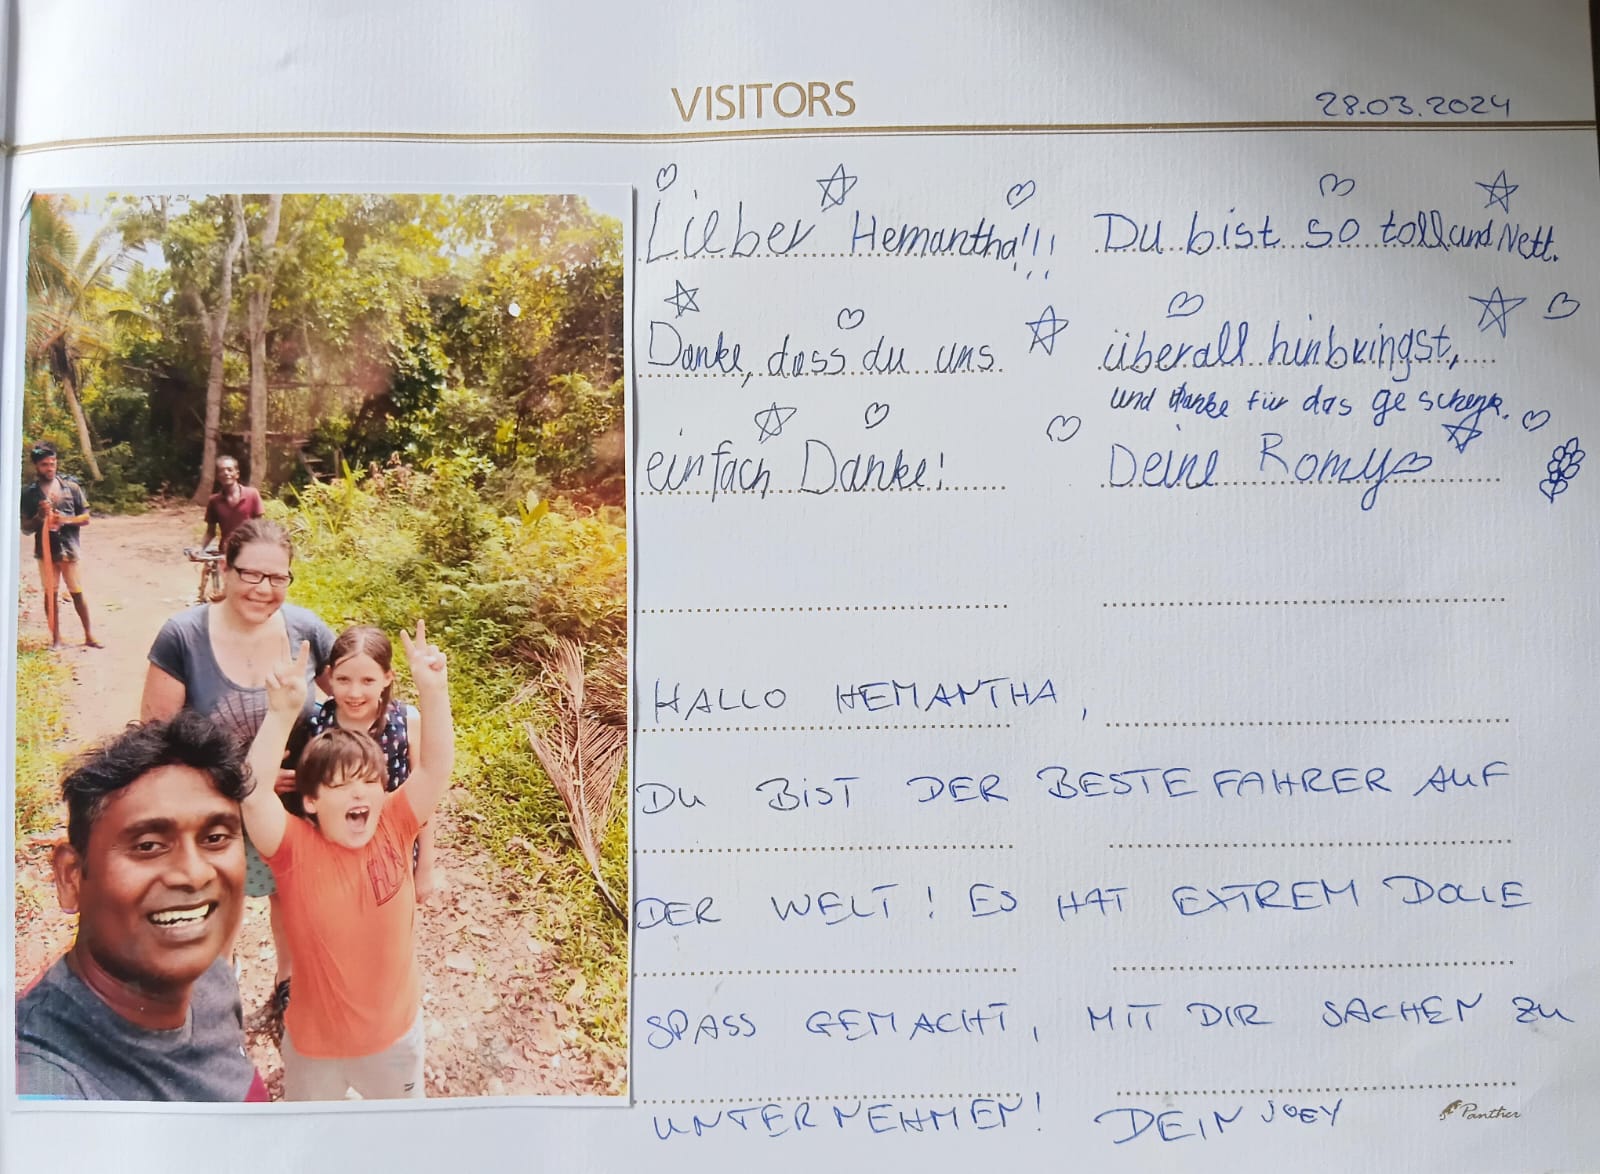 VISITORS
28.03.2024
Lieber Hemantha!!! Du bist so toll und Nett.
Danke, dass du uns überall hinbringst,
und danke für das geschenk.
einfach Danke! Deine Romy
HALLO HEMANTHA,
DU BIST DER BESTE FAHRER AUF
DER WELT! ES HAT EXTREM DOLLE
SPASS GEMACHT, MIT DIR SACHEN ZU
UNTERNEHMEN! DEIN JOEY
Panther